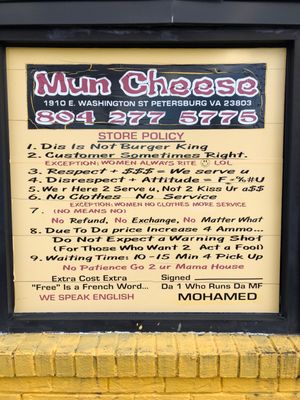 Mun Cheese
1910 E. WASHINGTON ST PETERSBURG VA 23803
804 277 5775
STORE POLICY
1. Dis Is Not Burger King
2. Customer Sometimes Right.
EXCEPTION: WOMEN ALWAYS RITE LOL
3. Respect + $$$ = We serve u
4. Disrespect + Attitude = F_-%#U
5. We r Here 2 Serve u, Not 2 Kiss Ur a$$
6. No Clothes No Service
EXCEPTION: WOMEN NO CLOTHES MORE SERVICE
7. (NO MEANS NO)
No Refund, No Exchange, No Matter What
8. Due To Da price Increase 4 Ammo...
Do Not Expect a Warning Shot
(For Those Who Want 2 Act a Fool)
9. Waiting Time: 10-15 Min 4 Pick Up
No Patience Go 2 ur Mama House
Extra Cost Extra
Signed
"Free" Is a French Word...
Da 1 Who Runs Da MF
WE SPEAK ENGLISH
MOHAMED